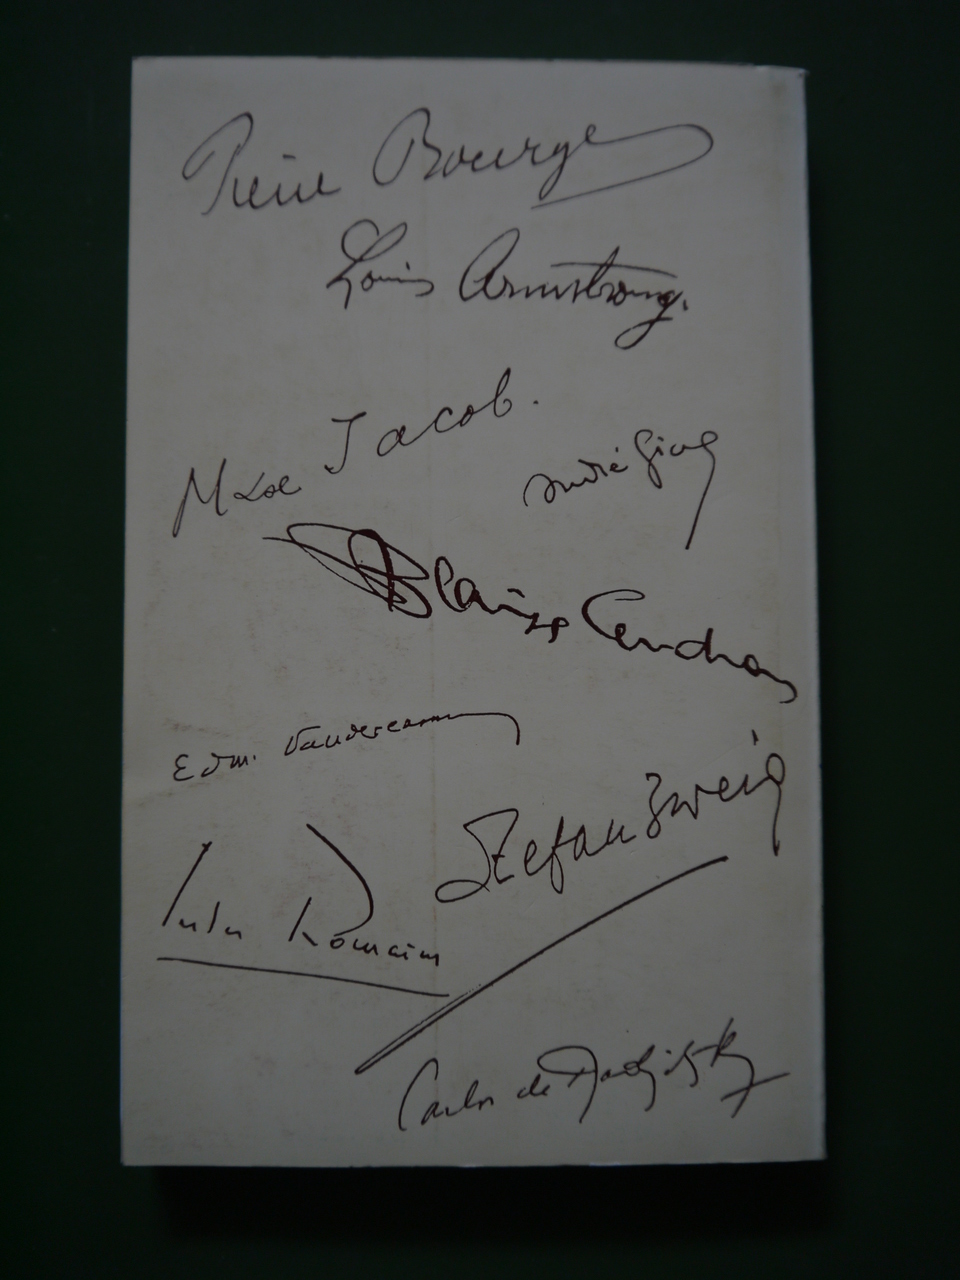 Pierre Bourgeois
Louis Armstrong.
Max Jacob.
André Gide
Blaise Cendrars
Edm. Vandercammen
Stefan Zweig
Jules Romains
Carlos de Radzitzky